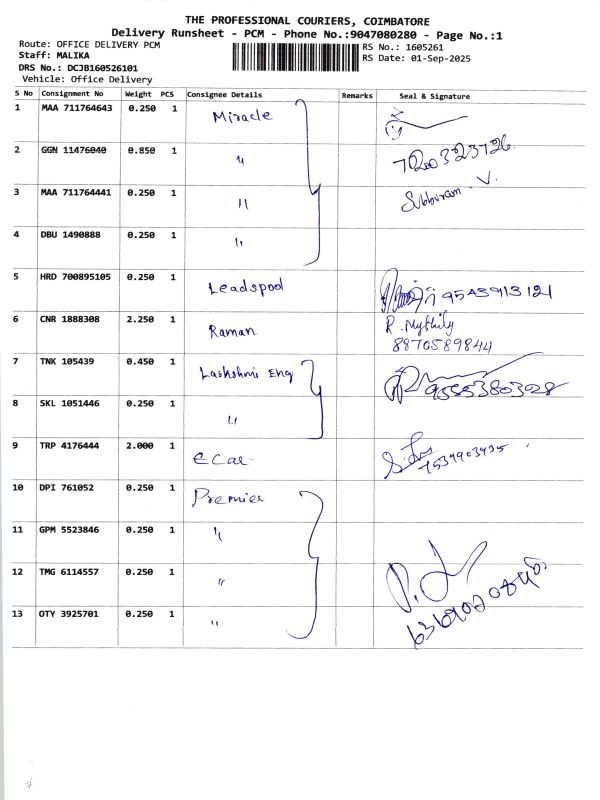 THE PROFESSIONAL COURIERS, COIMBATORE
Delivery Runsheet - PCM - Phone No.:9047080280 - Page No.:1
Route: OFFICE DELIVERY PCM
Staff: MALIKA
DRS No.: DCJB160526101
Vehicle: Office Delivery
RS No.: 1605261
RS Date: 01-Sep-2025
S No Consignment No Weight PCS Consignee Details Remarks Seal & Signature
1 MAA 711764643 0.250 1 Miracle
2 GGN 11476040 0.850 1 " 7200323726
3 MAA 711764441 0.250 1 " Subbiram. V.
4 DBU 1490888 0.250 1 "
5 HRD 700895105 0.250 1 Leadspool 9543913121
6 CNR 1888308 2.250 1 Raman R. Mythily
8870589844
7 TNK 105439 0.450 1 Lakshmi Eng 9555380328
8 SKL 1051446 0.250 1 "
9 TRP 4176444 2.000 1 ECar
10 DPI 761052 0.250 1 Premier
11 GPM 5523846 0.250 1 "
12 TMG 6114557 0.250 1 "
13 OTY 3925701 0.250 1 "